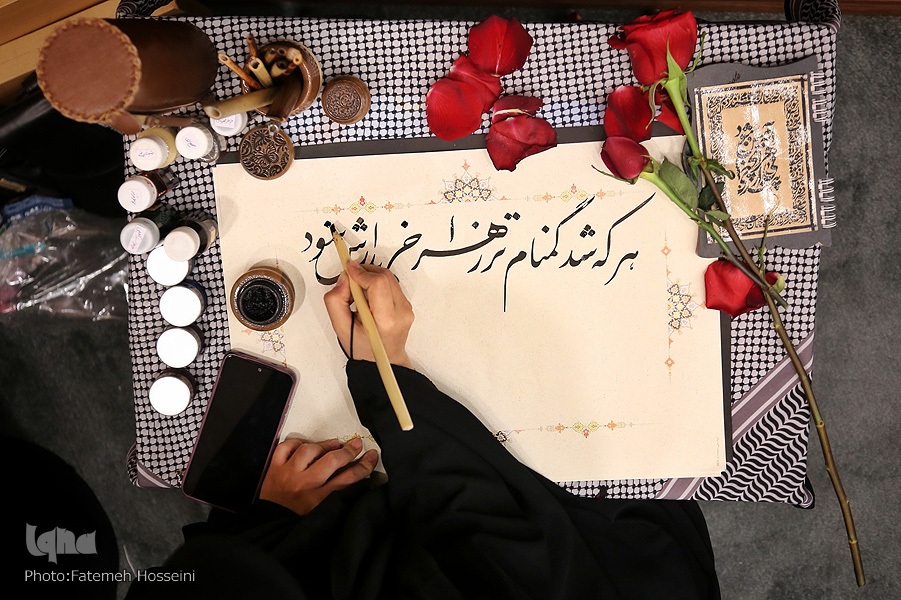 هر که شد گمنام تر زهرا خریدارش شود
Iqna
Photo:Fatemeh Hosseini